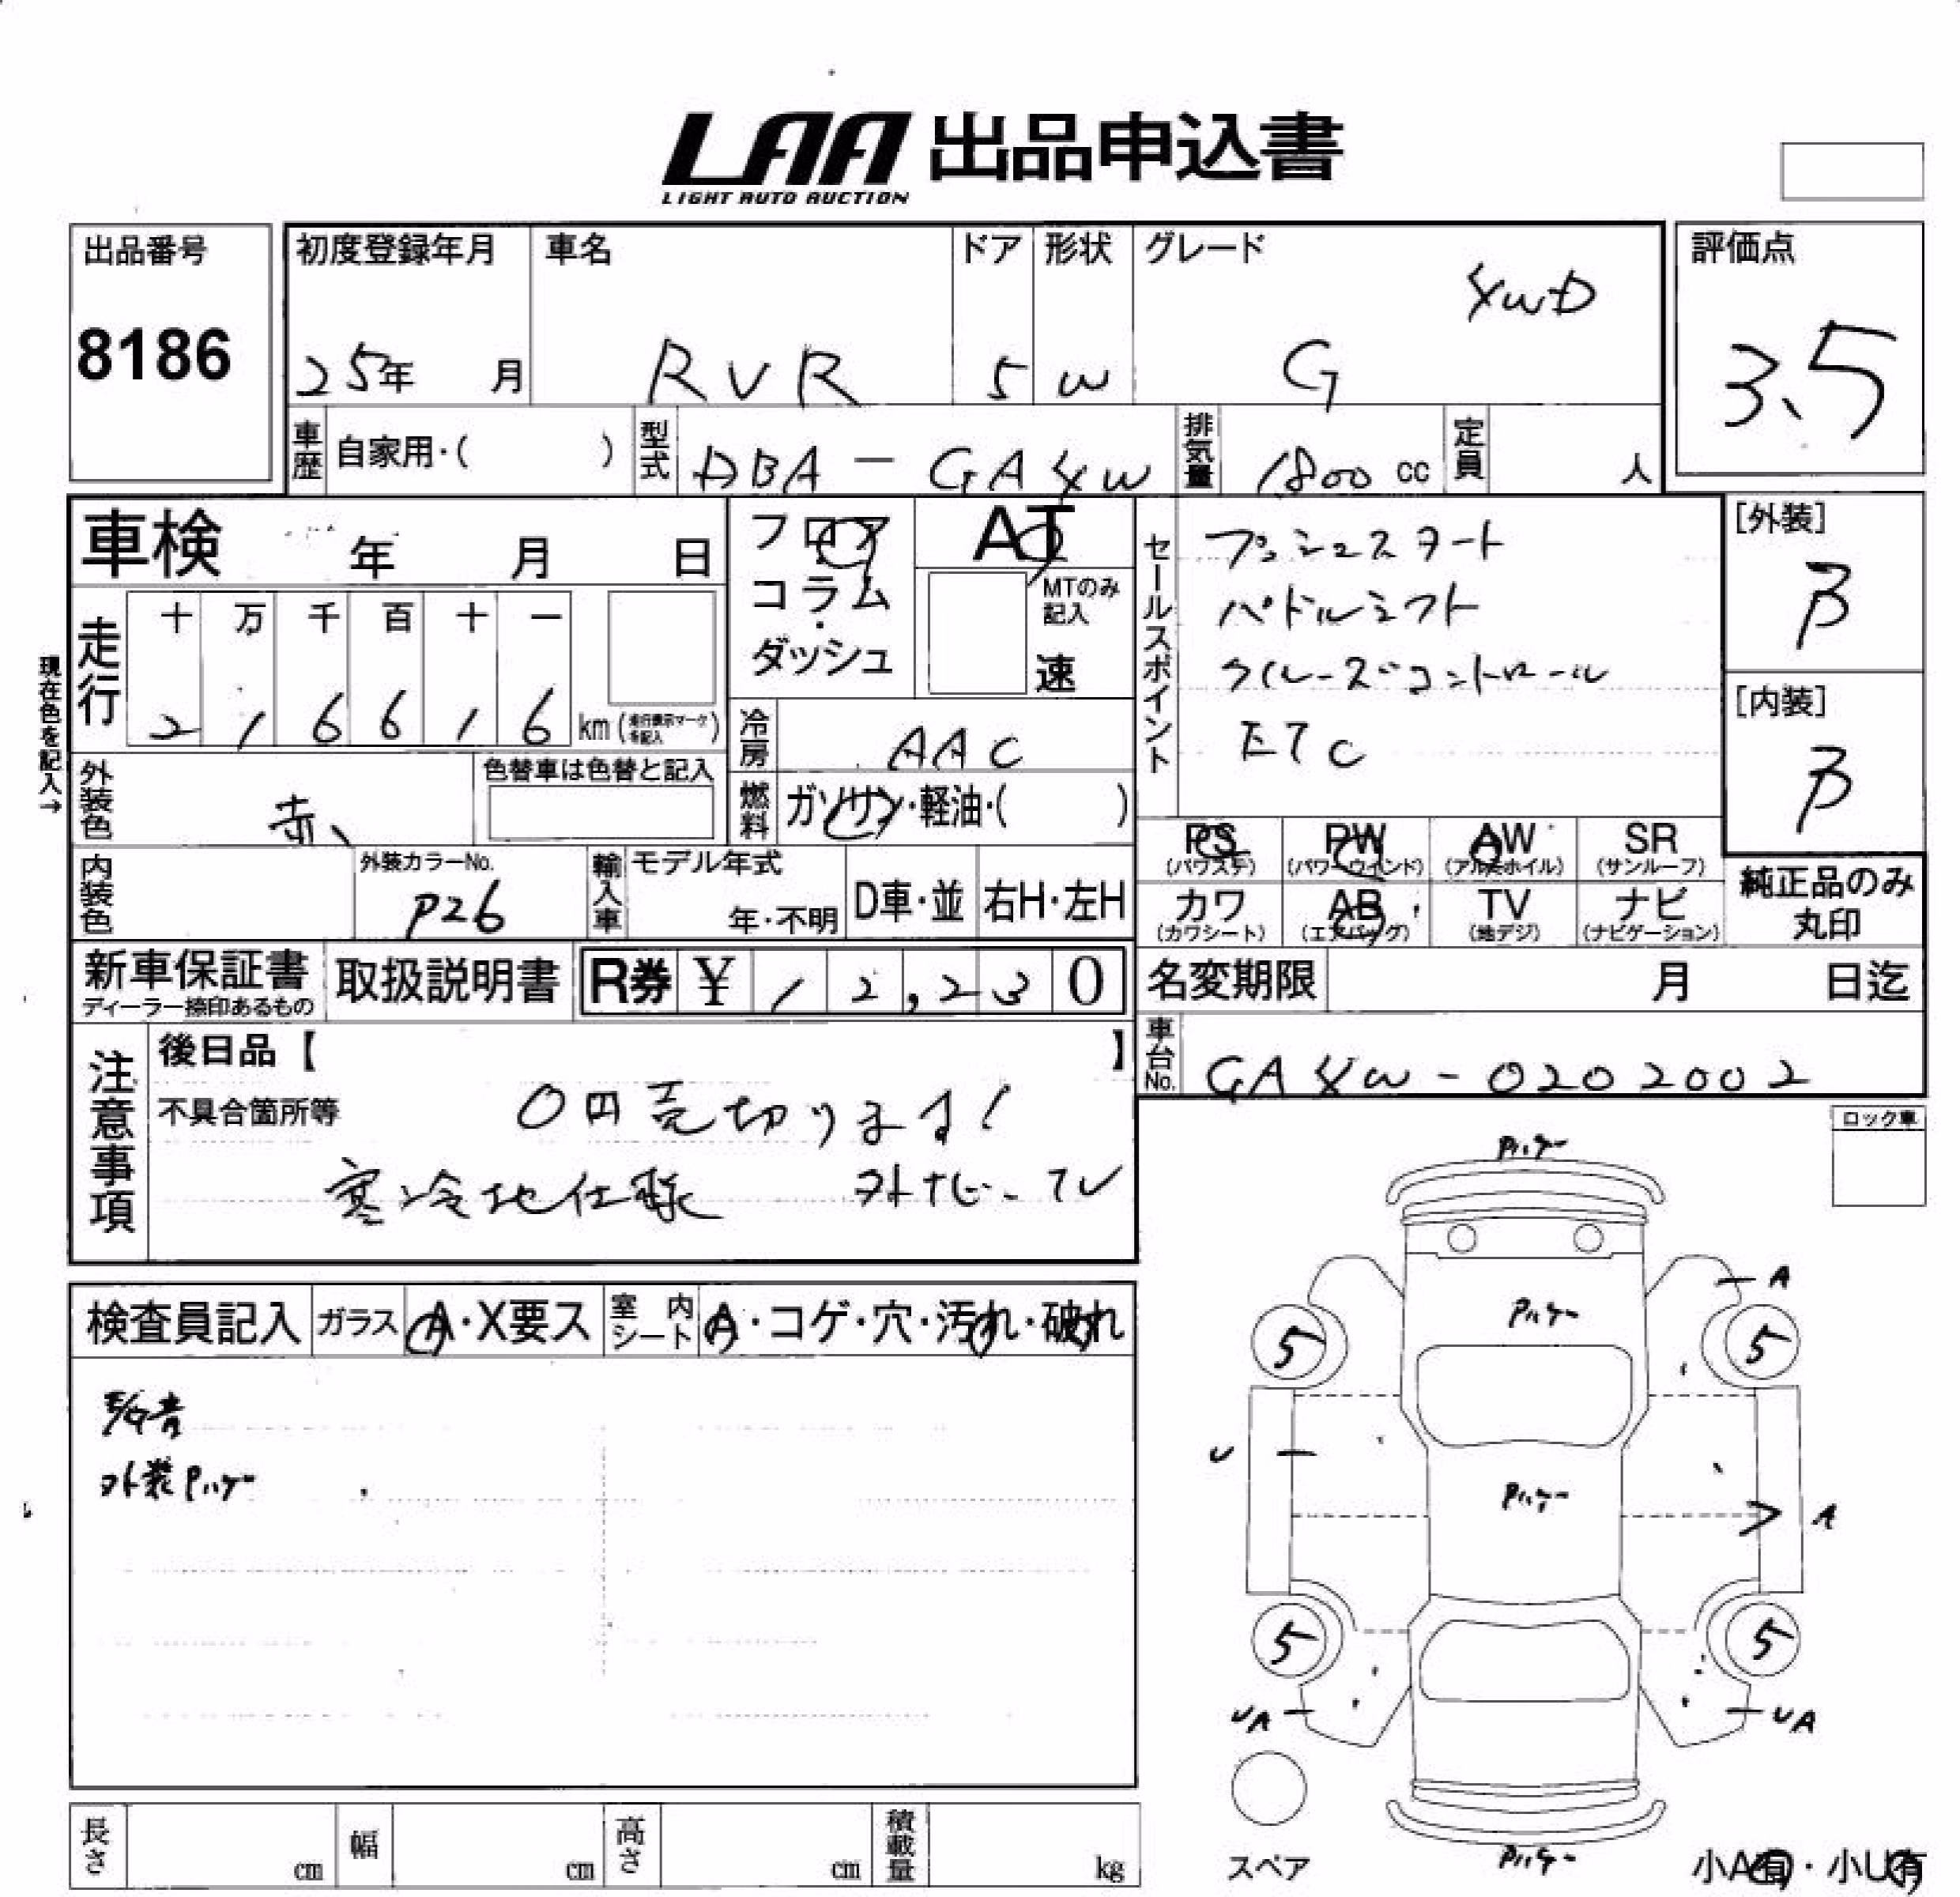 LAA 出品申込書
LIGHT AUTO AUCTION
出品番号
8186
初度登録年月
25年 月
車名
RVR
ドア
5
形状
W
グレード
4WD
G
評価点
3.5
車歴 自家用・( )
型式 DBA - GA4W
排気量 1800 cc
定員 人
車検 年 月 日
フロア
・
コラム
・
ダッシュ
AT
MTのみ
記入
速
セールスポイント
プッシュスタート
パドルシフト
クルーズコントロール
ETC
[外装]
B
[内装]
B
現在色を記入→
走行
十 万 千 百 十 一
2 1 6 6 1 6 km (走行表示マークを記入)
冷房 AAC
外装色 赤
色替車は色替と記入
燃料 ガソリン・軽油・( )
PS (パワステ)
PW (パワーウインド)
AW (アルミホイル)
SR (サンルーフ)
カワ (カワシート)
AB (エアバッグ)
TV (地デジ)
ナビ (ナビゲーション)
純正品のみ
丸印
内装色
外装カラーNo.
P26
輸入車
モデル年式
年・不明
D車・並
右H・左H
新車保証書
ディーラー捺印あるもの
取扱説明書
R券 ¥ 12,230
名変期限 月 日迄
車台No. GA4W - 0202002
注意事項
後日品【 】
不具合箇所等
0円売切ります!
寒冷地仕様 外ナビ-TV
ロック車
検査員記入
ガラス A・X要ス
室内シート A・コゲ・穴・汚れ・破れ
外装Pハゲー
Pハゲー
Pハゲー
A
5
5
U
Pハゲー
A
5
5
UA
UA
スペア
Pハゲー
小A有・小U有
長さ cm
幅 cm
高さ cm
積載量 kg